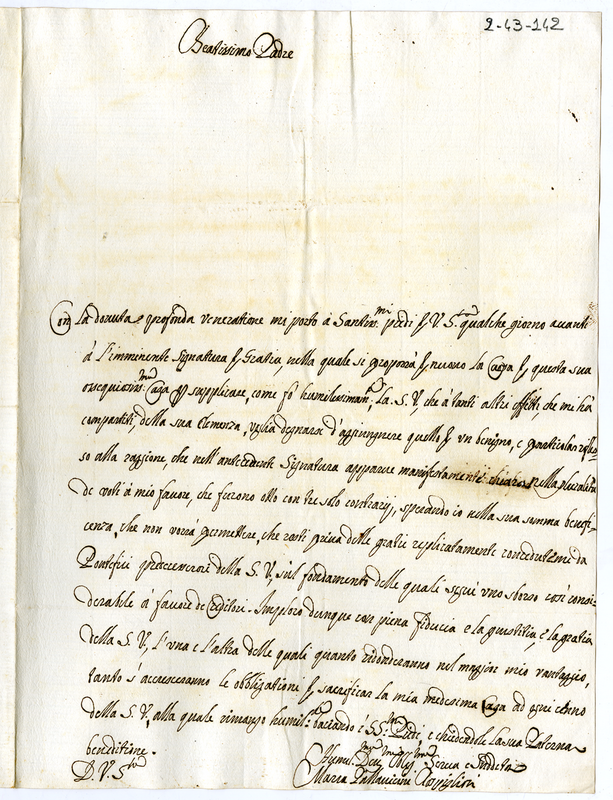 2-43-142
Beatissimo Padre
Con la dovuta e profonda veneratione mi porto à Santiss.mi piedi di V. S.tà qualche giorno avanti
à l'imminente signatura di Gratia nella quale si proporrà di nuovo la Causa di questa sua
ossequiosiss.ma Casa per supplicare, come fò humilissimam.te la S. V., che à tanti altri effetti, che mi hà
compartiti, della sua Clemenza, voglia degnarsi d'aggiungere quello di un benigno, e particolar rifles-
so alla raggione, che nell'antecedente Signatura apparve manifestamente nella pluralità
de voti à mio favore, che furono otto con tre solo contrarij, sperando io nella sua summa benefi-
cenza, che non vorrà permettere, che resti priva delle gratie replicatamente conceduteme da
Pontefici predecessori della S. V., sul fondamento delle quali seguì uno sborzo così consi-
derabile à favore de Creditori. Imploro dunque con piena fiducia e la giustitia, e la gratia
della S. V., l'una e l'altra delle quali quanto ridonderanno nel maggior mio vantaggio,
tanto s'accresceranno le obbligatione di sacrificar la mia medesima Casa ad ogni cenno
della S. V., alla quale rimango humil.te baciando i SS.mi Piedi, e chiedendole la sua Paterna
beneditione.
D. V. S.tà
Humil.ma Dev.ma Obl.ma Serva e Suddita
Maria Pallavicini Rospigliosi